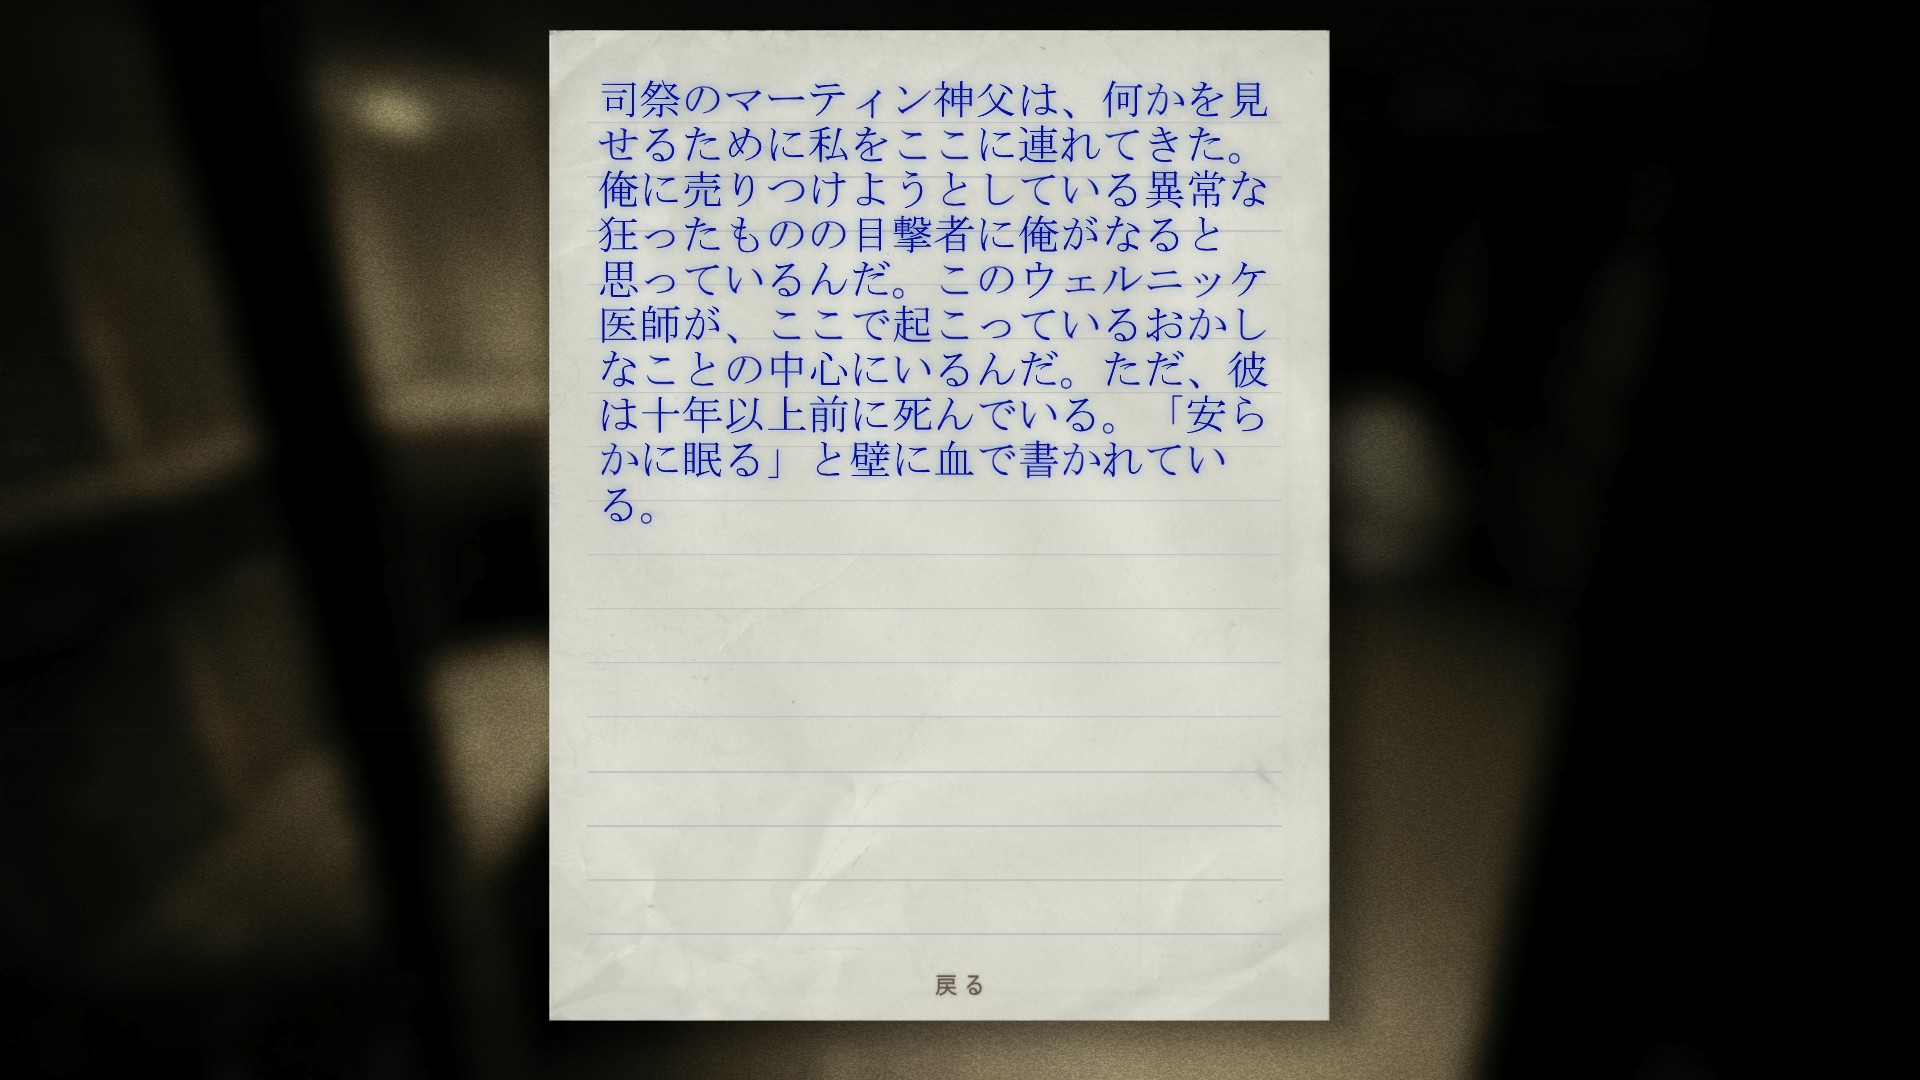 司祭のマーティン神父は、何かを見
せるために私をここに連れてきた。
俺に売りつけようとしている異常な
狂ったものの目撃者に俺がなると
思っているんだ。このウェルニッケ
医師が、ここで起こっているおかし
なことの中心にいるんだ。ただ、彼
は十年以上前に死んでいる。「安ら
かに眠る」と壁に血で書かれてい
る。
戻る